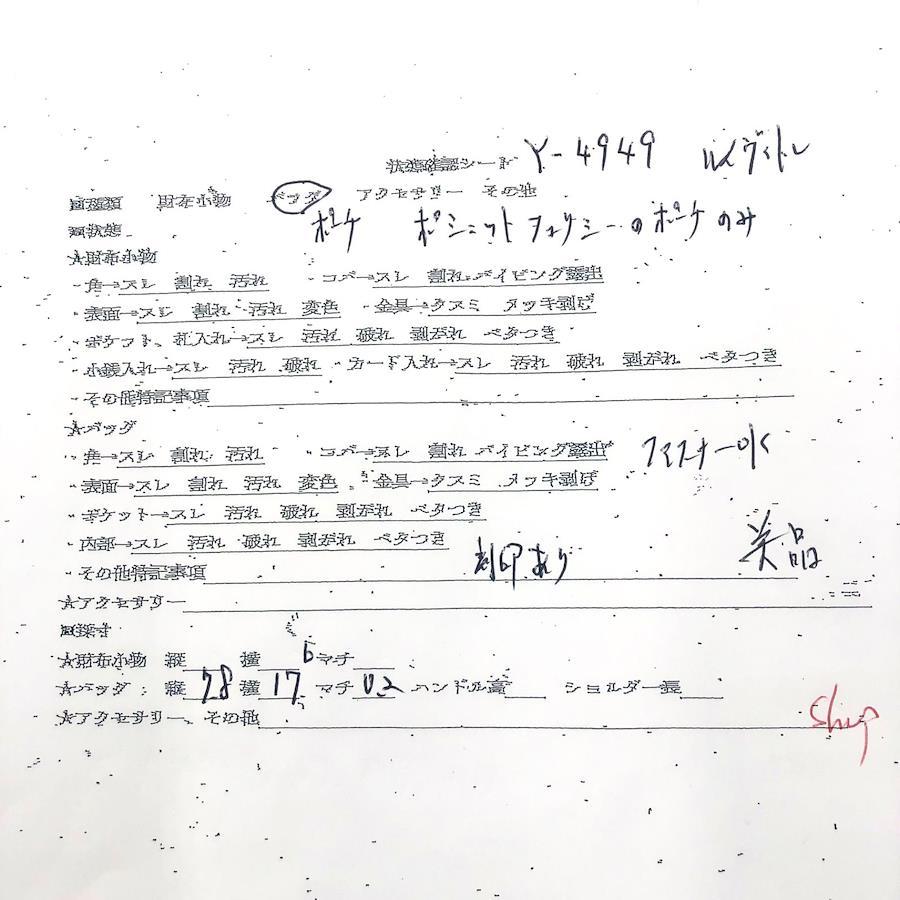 状態確認シート Y-4949 ルイヴィトン
■種類 財布小物 バッグ アクセサリー その他
■状態 ポシェットフォリシーのポーチのみ
★財布小物
・角→スレ 割れ 汚れ ・コバ→スレ 割れ パイピング露出
・表面→スレ 割れ 汚れ 変色 ・金具→クスミ メッキ剥げ
・ポケット、札入れ→スレ 汚れ 破れ 剥がれ ベタつき
・小銭入れ→スレ 汚れ 破れ ・カード入れ→スレ 汚れ 破れ 剥がれ ベタつき
・その他特記事項
★バッグ
・角→スレ 割れ 汚れ ・コバ→スレ 割れ パイピング露出
・表面→スレ 割れ 汚れ 変色 ・金具→クスミ メッキ剥げ
・ポケット→スレ 汚れ 破れ 剥がれ ベタつき
・内部→スレ 汚れ 破れ 剥がれ ベタつき
・その他特記事項 刻印あり 美品
★アクセサリー
■採寸
★財布小物 縦 横 マチ
★バッグ:縦 横 17 マチ 0.2 ハンドル高 ショルダー長
★アクセサリー、その他
Ship